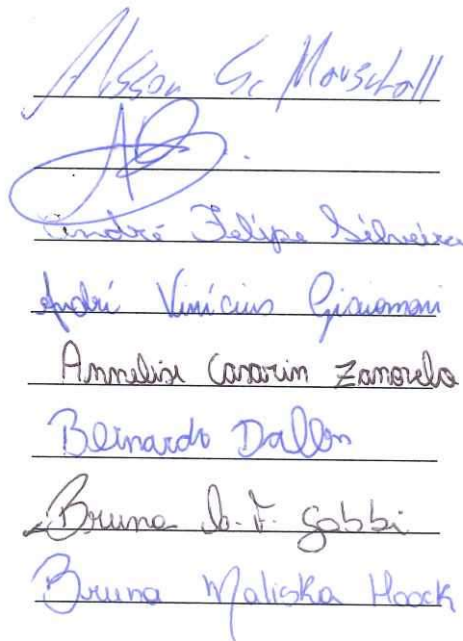 Alisson G. Marschall
André Felipe Silveira
André Vinícius Giacomoni
Annelise Casarin Zanorelo
Bernardo Dallon
Bruna D. F. Gobbi
Bruna Maliska Haack